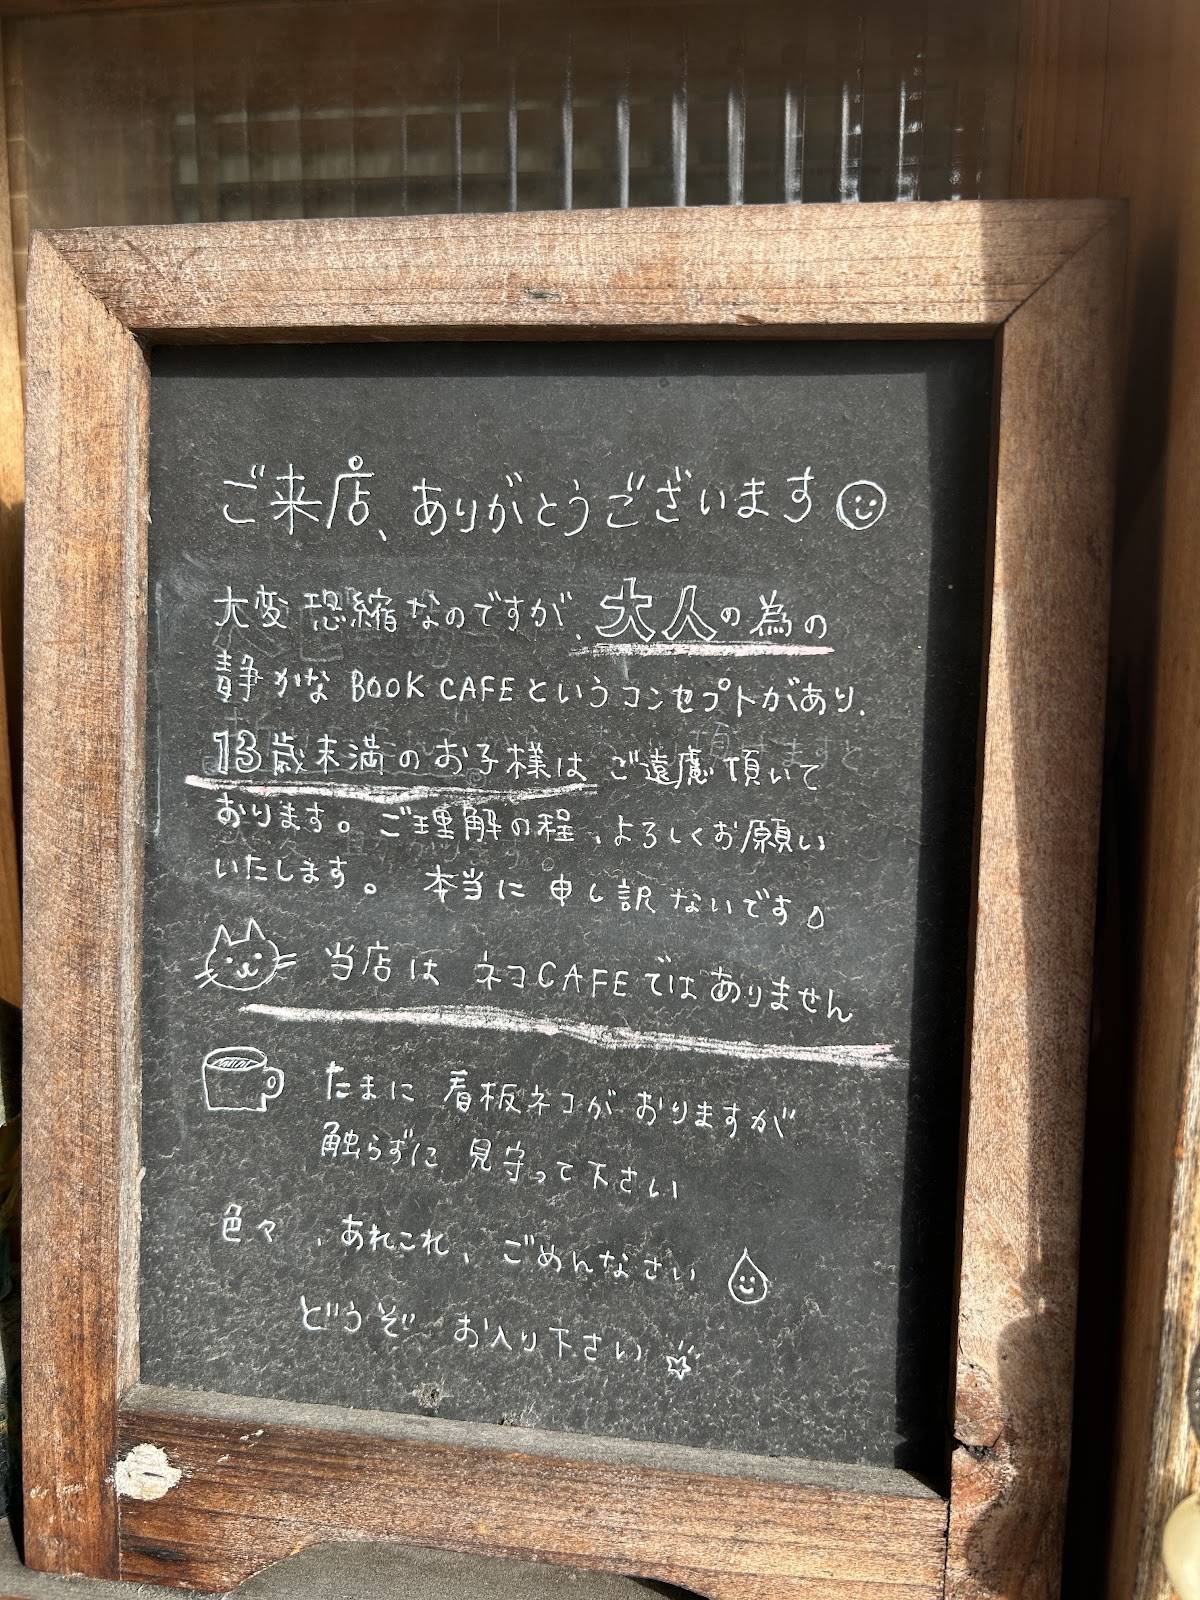 ご来店、ありがとうございます
大変恐縮なのですが、大人の為の
静かなBOOK CAFEというコンセプトがあり、
13歳未満のお子様はご遠慮頂いて
おります。ご理解の程、よろしくお願い
いたします。本当に申し訳ないです
当店はネコCAFEではありません
たまに看板ネコがおりますが
触らずに見守って下さい
色々、あれこれ、ごめんなさい
どうぞお入り下さい